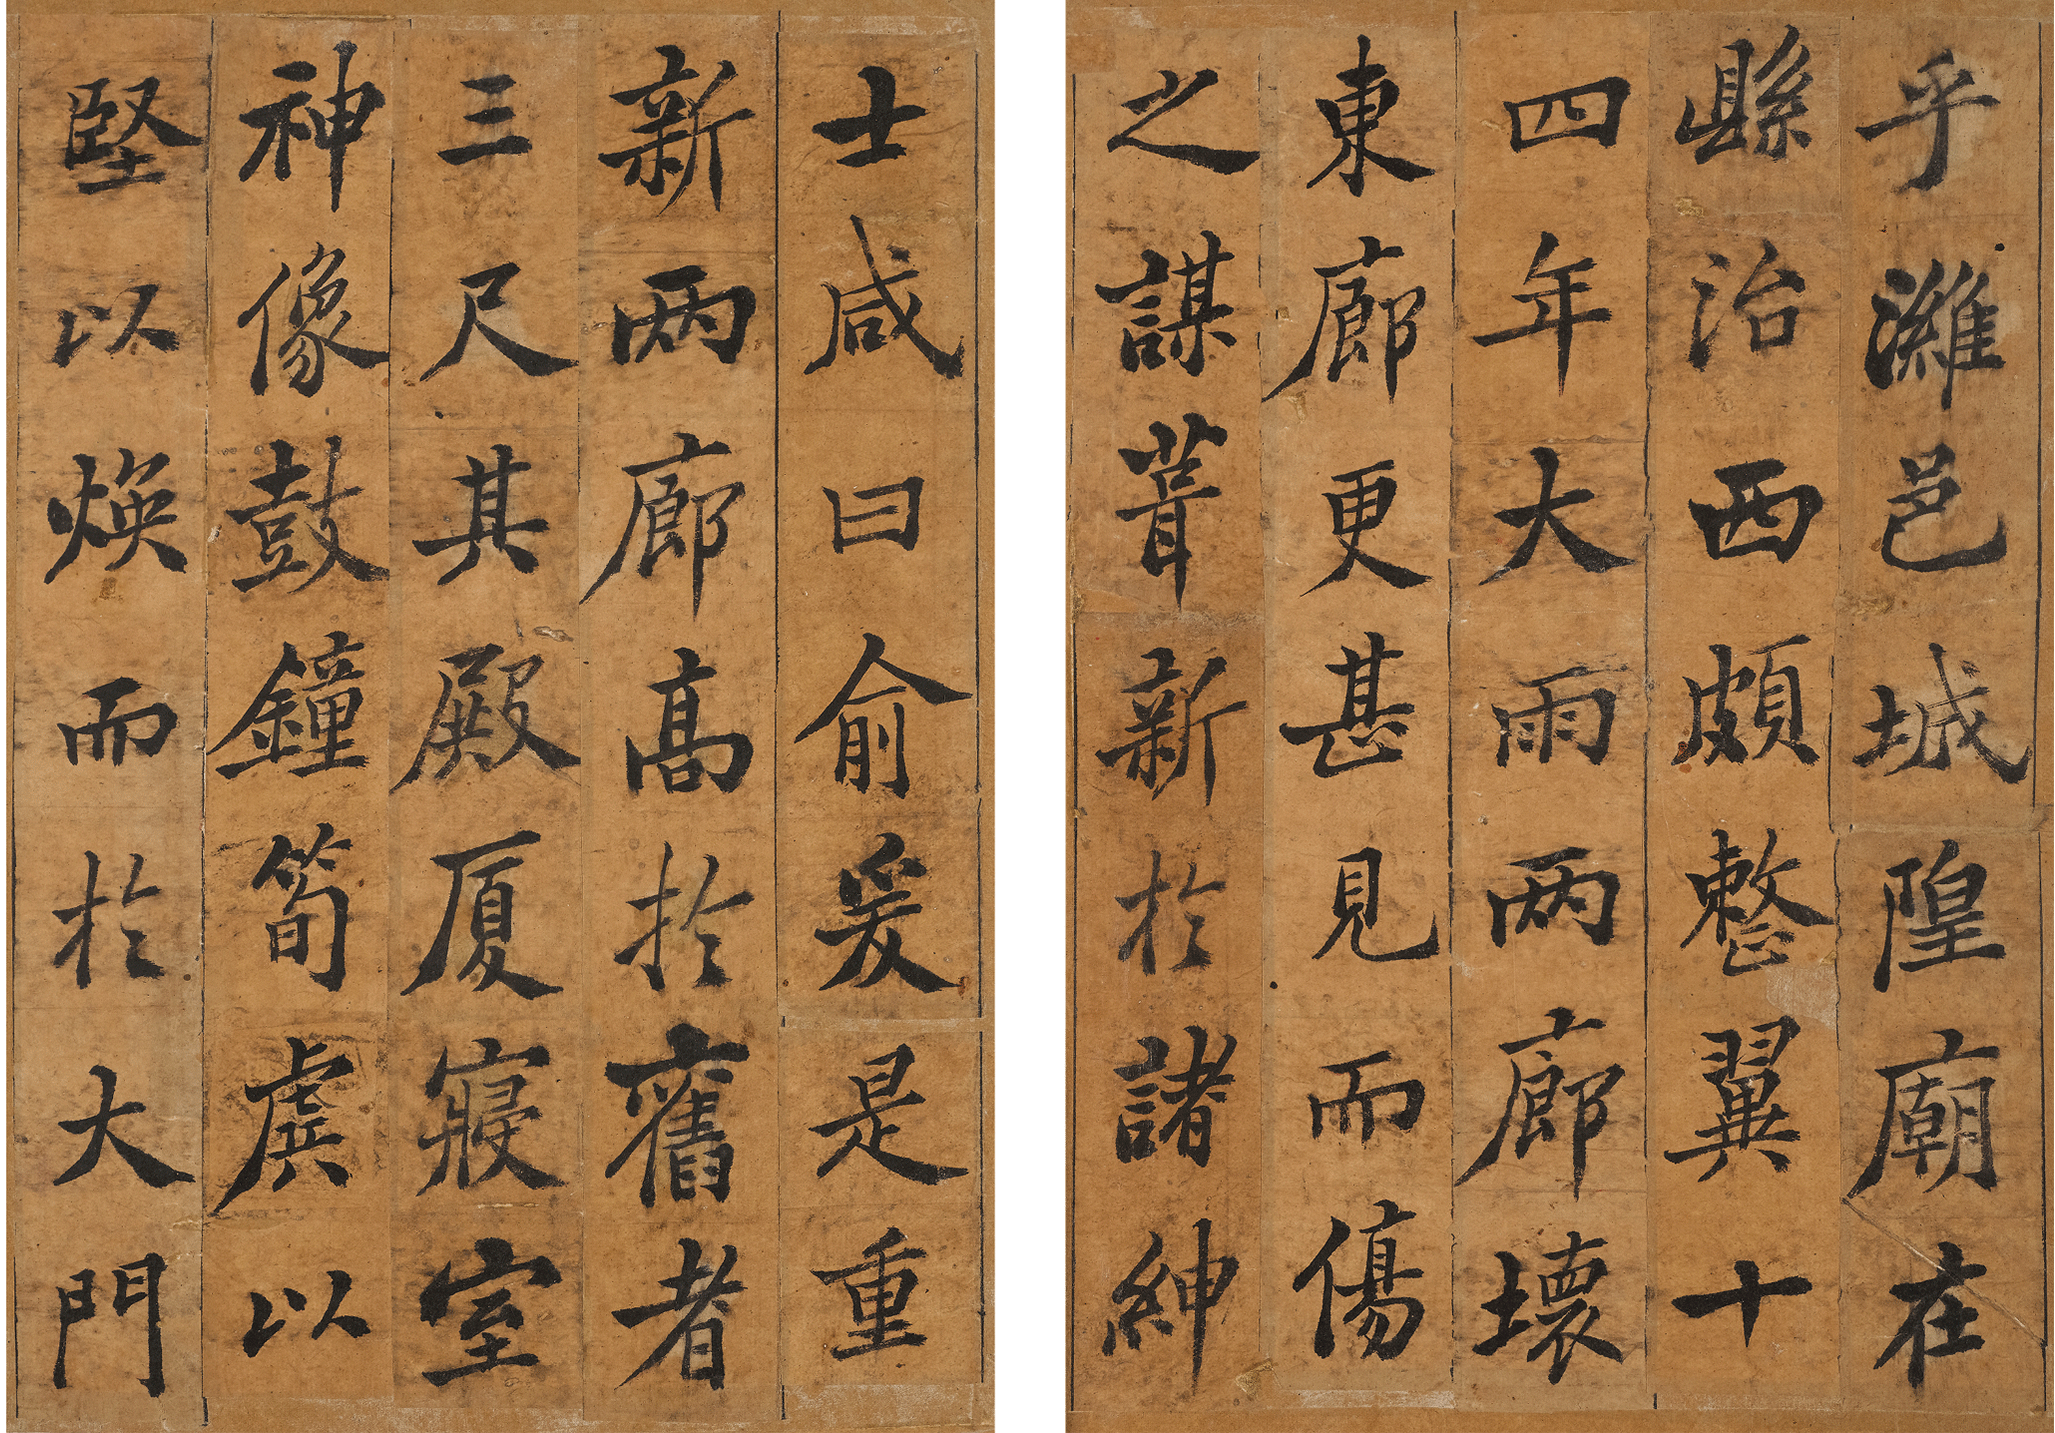 乎濰邑城隍廟在
縣治西頗整翼十
四年大雨兩廊壞
東廊更甚見而傷
之謀葺新於諸紳
士咸曰俞爰是重
新兩廊高於舊者
三尺其殿厦寢室
神像鼓鐘筍虡以
堅以煥而於大門